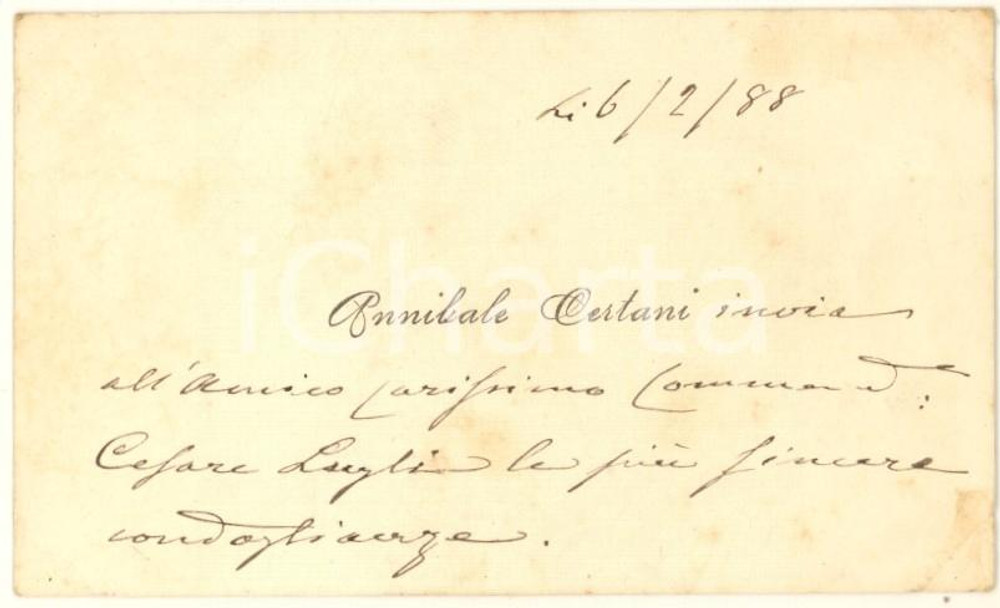 Li 6/2/88
iCharta
Annibale Certani invia
all'Amico carissimo Command:
Cesare Lugli le più sincere
condoglianze.